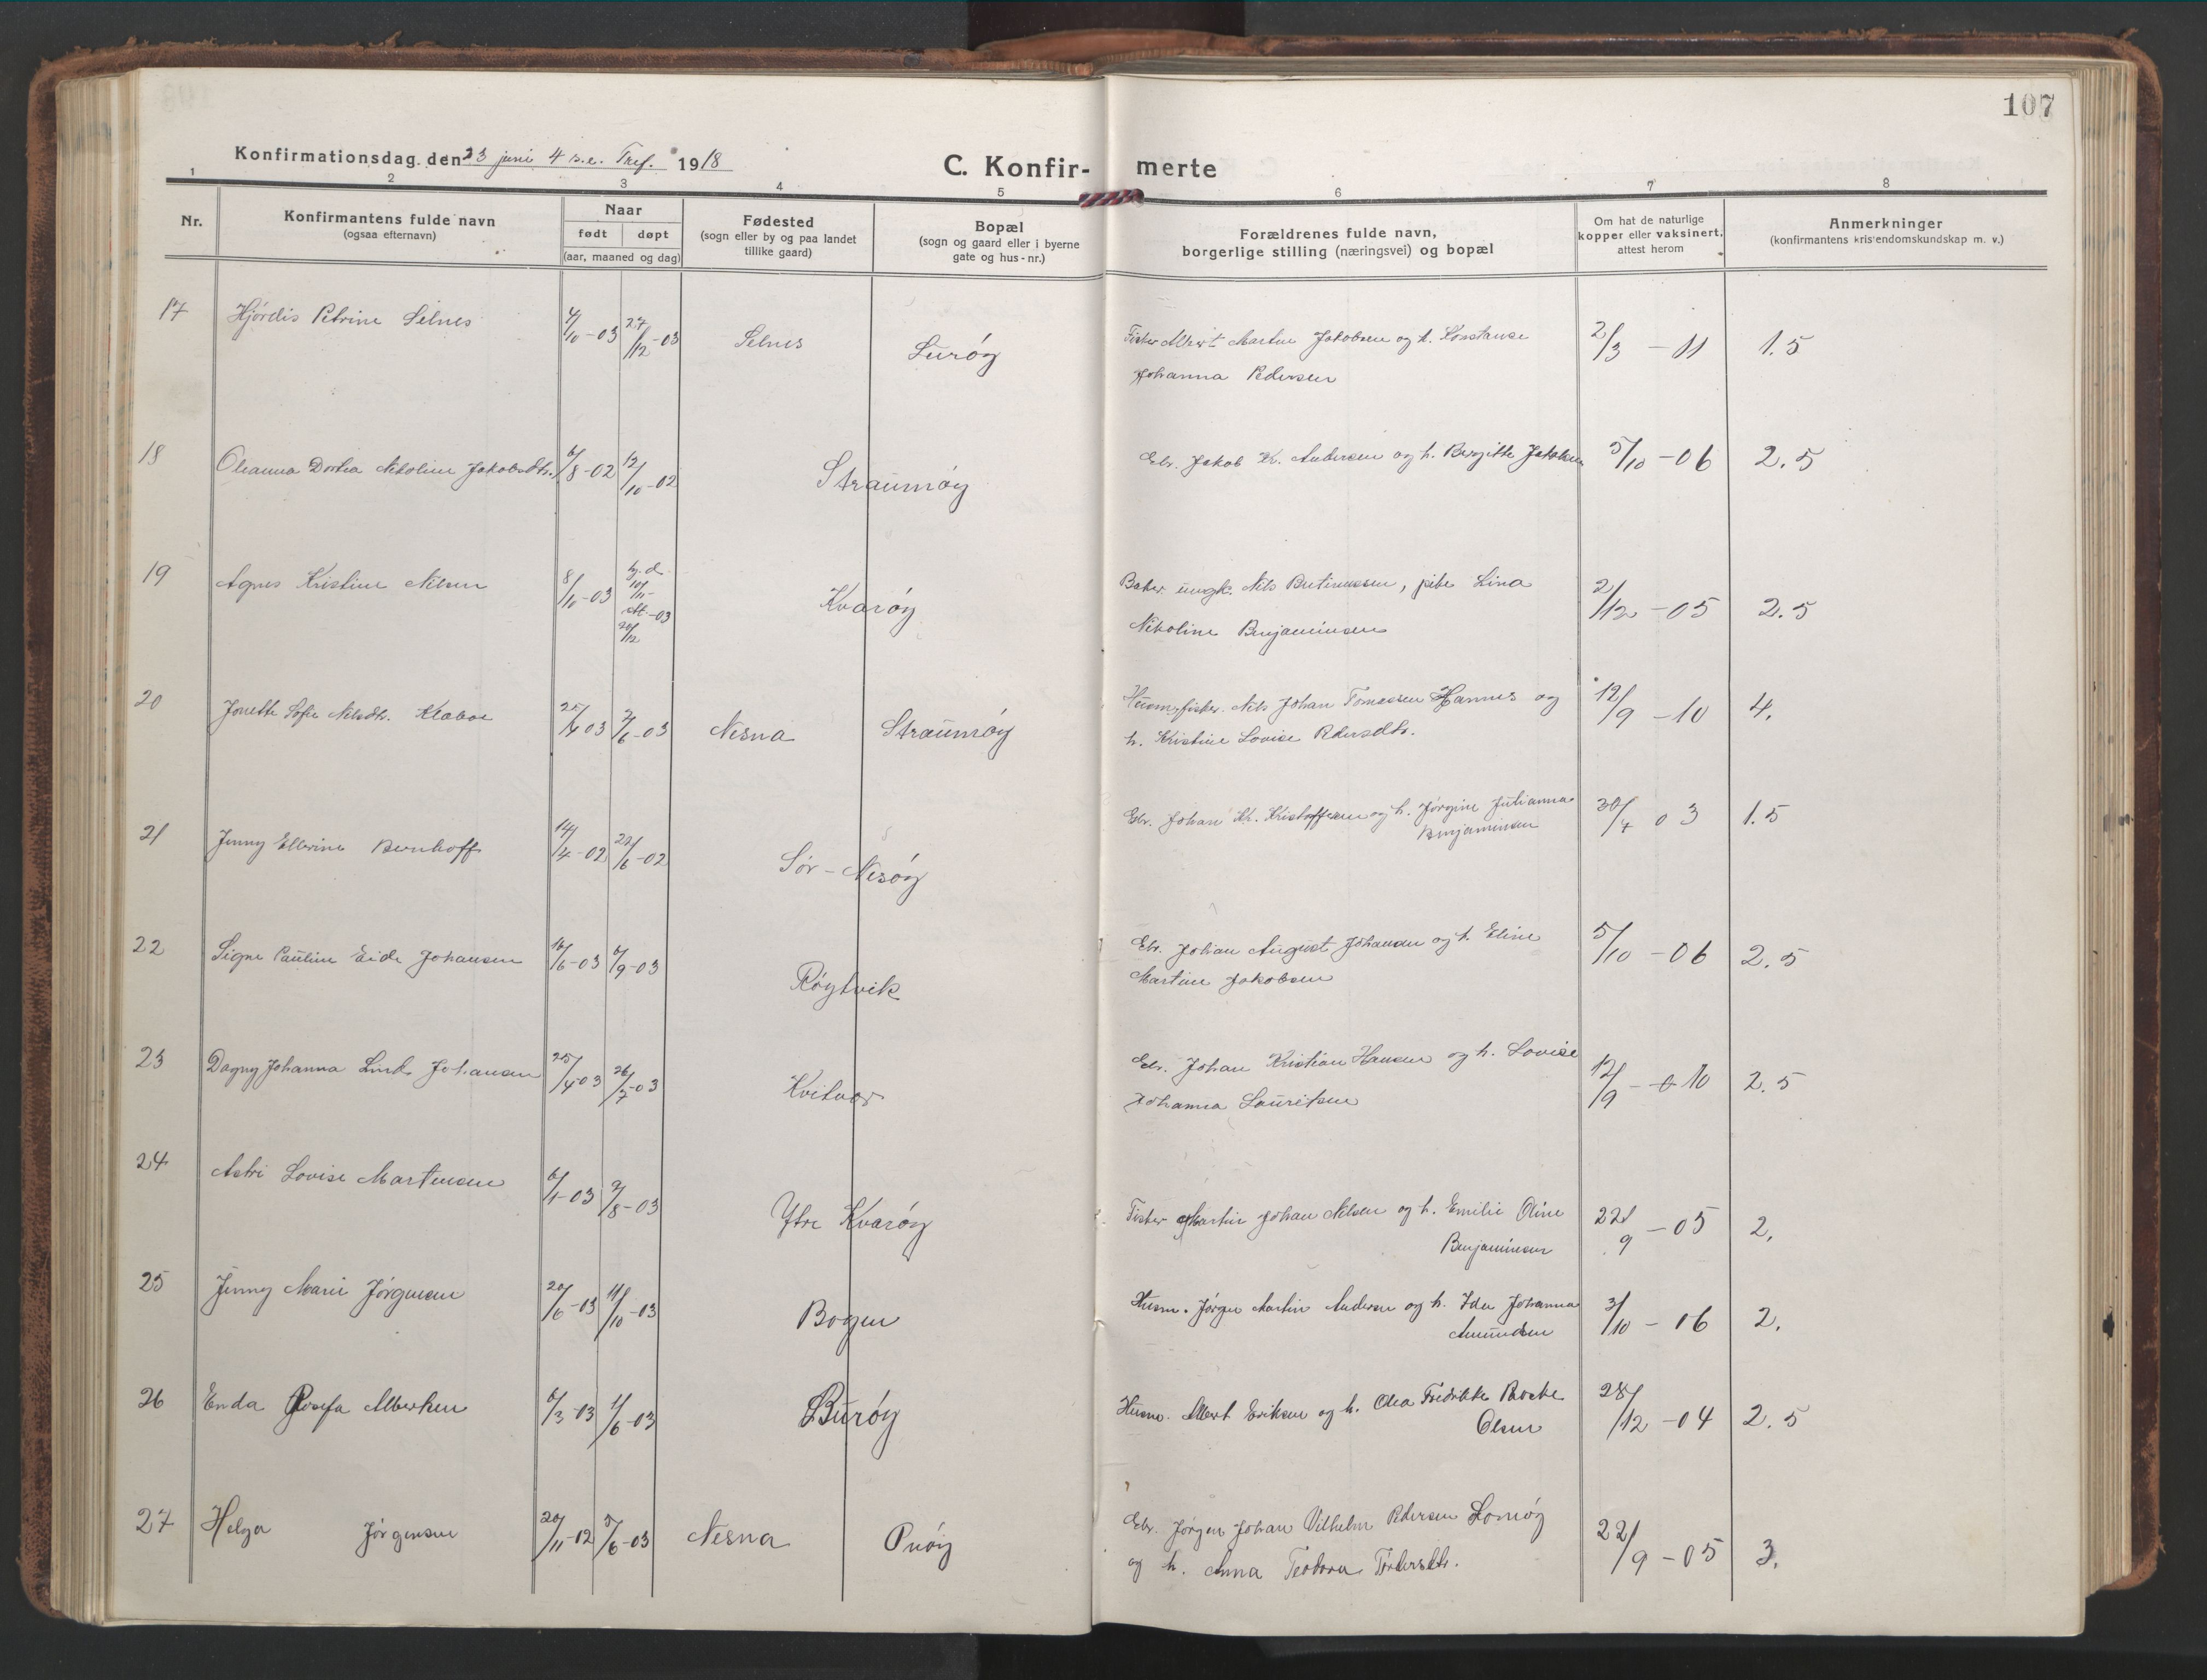 107
Konfirmationsdag den 23 juni 4 s.e. Tref. 1918
C. Konfir-merte
1 2 3 4 5 6 7 8
Nr.
Konfirmantens fulde navn
(ogsaa efternavn)
Naar
født døpt
(aar, maaned og dag)
Fødested
(sogn eller by og paa landet
tillike gaard)
Bopæl
(sogn og gaard eller i byerne
gate og hus-nr.)
Forældrenes fulde navn,
borgerlige stilling (næringsvei) og bopæl
Om hat de naturlige
kopper eller vaksinert,
attest herom
Anmerkninger
(konfirmantens kristendomskundskap m. v.)
17 Hjördis Petrine Selnes 4/10-03 27/12-03 Selnes Luröy Fisker Albert Martin Jakobsen og h. Konstanse 2/3 - 11 1.5
Johanna Pedersen
18 Oleanna Dortea Nikoline Jakobsdtr. 6/8-02 12/10-02 Straumöy Ebr. Jakob K. Andersen og h. Bergitte Jakobsen 5/10 - 06 2.5
19 Agnes Kristine Nilsen 8/10-03 hj. d. 10/11- st. -03 20/12 Kvaröy ungk. Nils, pike Lina 2/12 - 05 2.5
Nikoline Benjaminsen
20 Jonette Sofie Nilsdtr. Klæboe 25/4 03 7/6-03 Nesna Straumöy Nils Johan Tomassen Hannes og 12/9 - 10 4.
h. Kristine Lovise Pedersdtr.
21 Jenny Ellerine Bernhoff 14/4-02 22/6-02 Sör-Nesöy Ebr. Johan Kr. Kristoffersen og h. Jörgine Julianna 30/4 03 1.5
Benjaminsen
22 Signe Pauline Eide Johansen 16/6-03 6/9-03 Röytvik Ebr. Johan August Johansen og h. Eline 5/10 - 06 2.5
Martine Jakobsen
23 Dagny Johanna Johansen 25/4-03 26/7-03 Ebr. Johan Kristian Hansen og h. Lovise 12/9 - 10 2.5
Johanna Lauritsen
24 Astri Lovise Martinsen 6/1-03 9/8-03 Ytre Kvaröy Fisker Martin Johan Nilsen og h. Emilie Oline 22/9 - 05 2.
Benjaminsen
25 Jenny Marie Jörgensen 20/6-03 11/10-03 Bogen Husm. Jörgen Martin Andersen og h. Ida Johanna 3/10 - 06 2.
Amundsen
26 Enda Josefa Albertsen 6/3-03 1/6-03 Buröy Husm. Albert Eriksen og h. Olea Fredrikke 28/12 - 04 2.5
Olsen
27 Helga Jörgensen 20/11-02 5/6-03 Nesna Ebr. Jörgen Johan Vilhelm Pedersen Lomöy 22/9 - 05 3.
og h. Anna Teodora